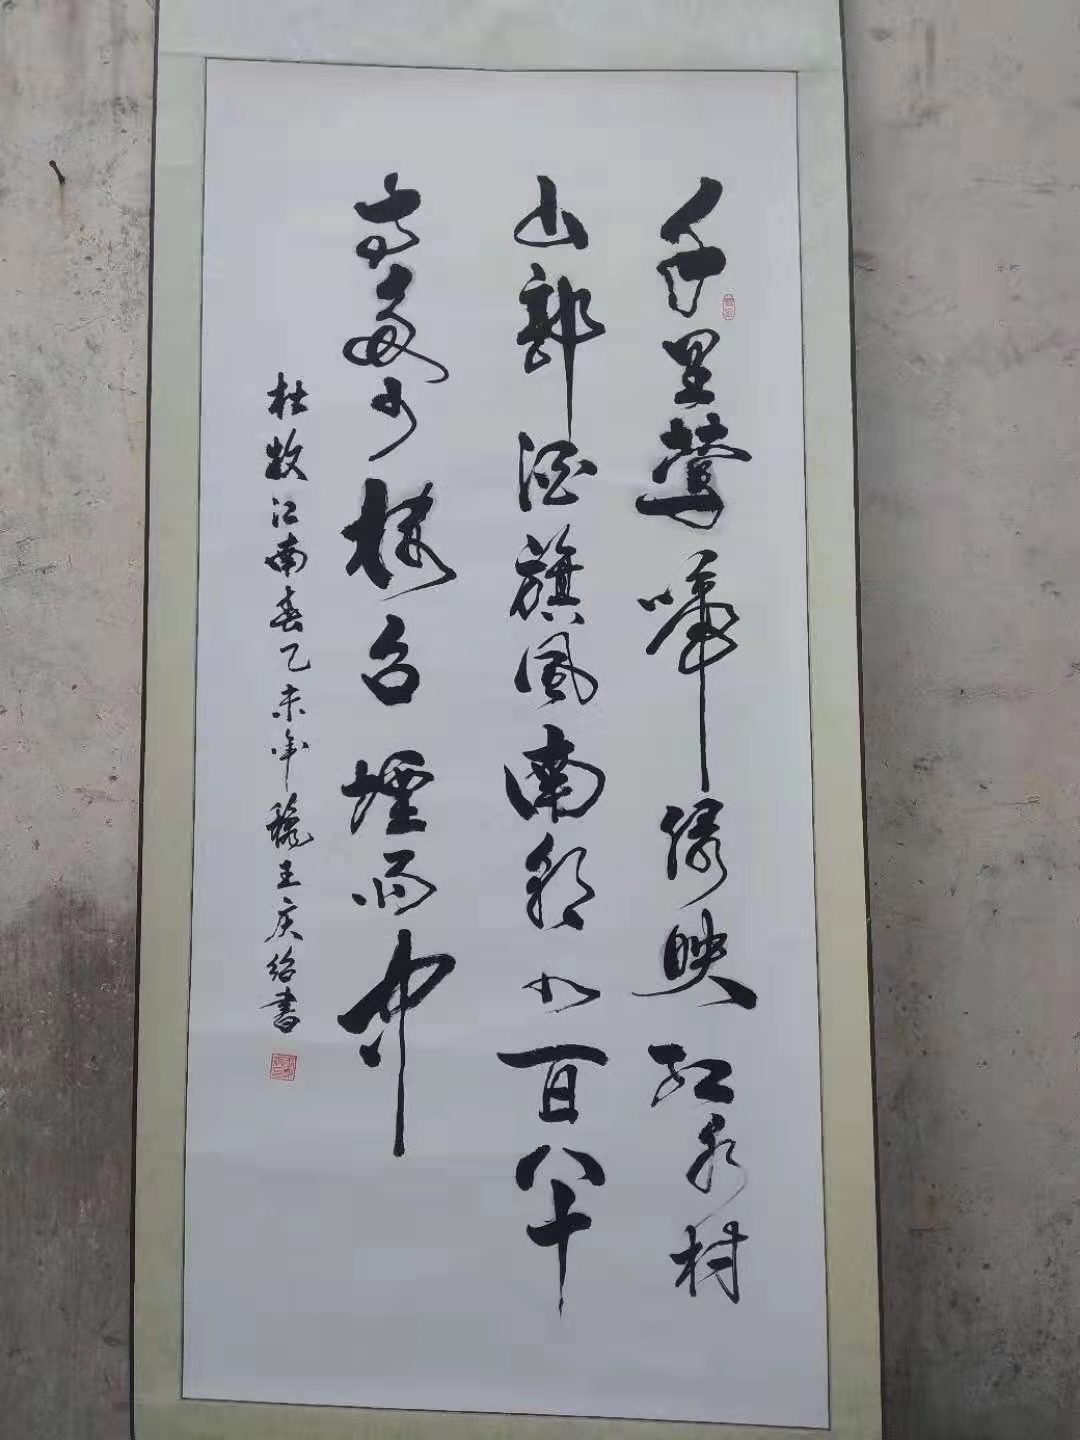 千里莺啼绿映红水村
山郭酒旗风南朝四百八十
寺多少楼台煙雨中
杜牧江南春乙未年穐王庆绍書